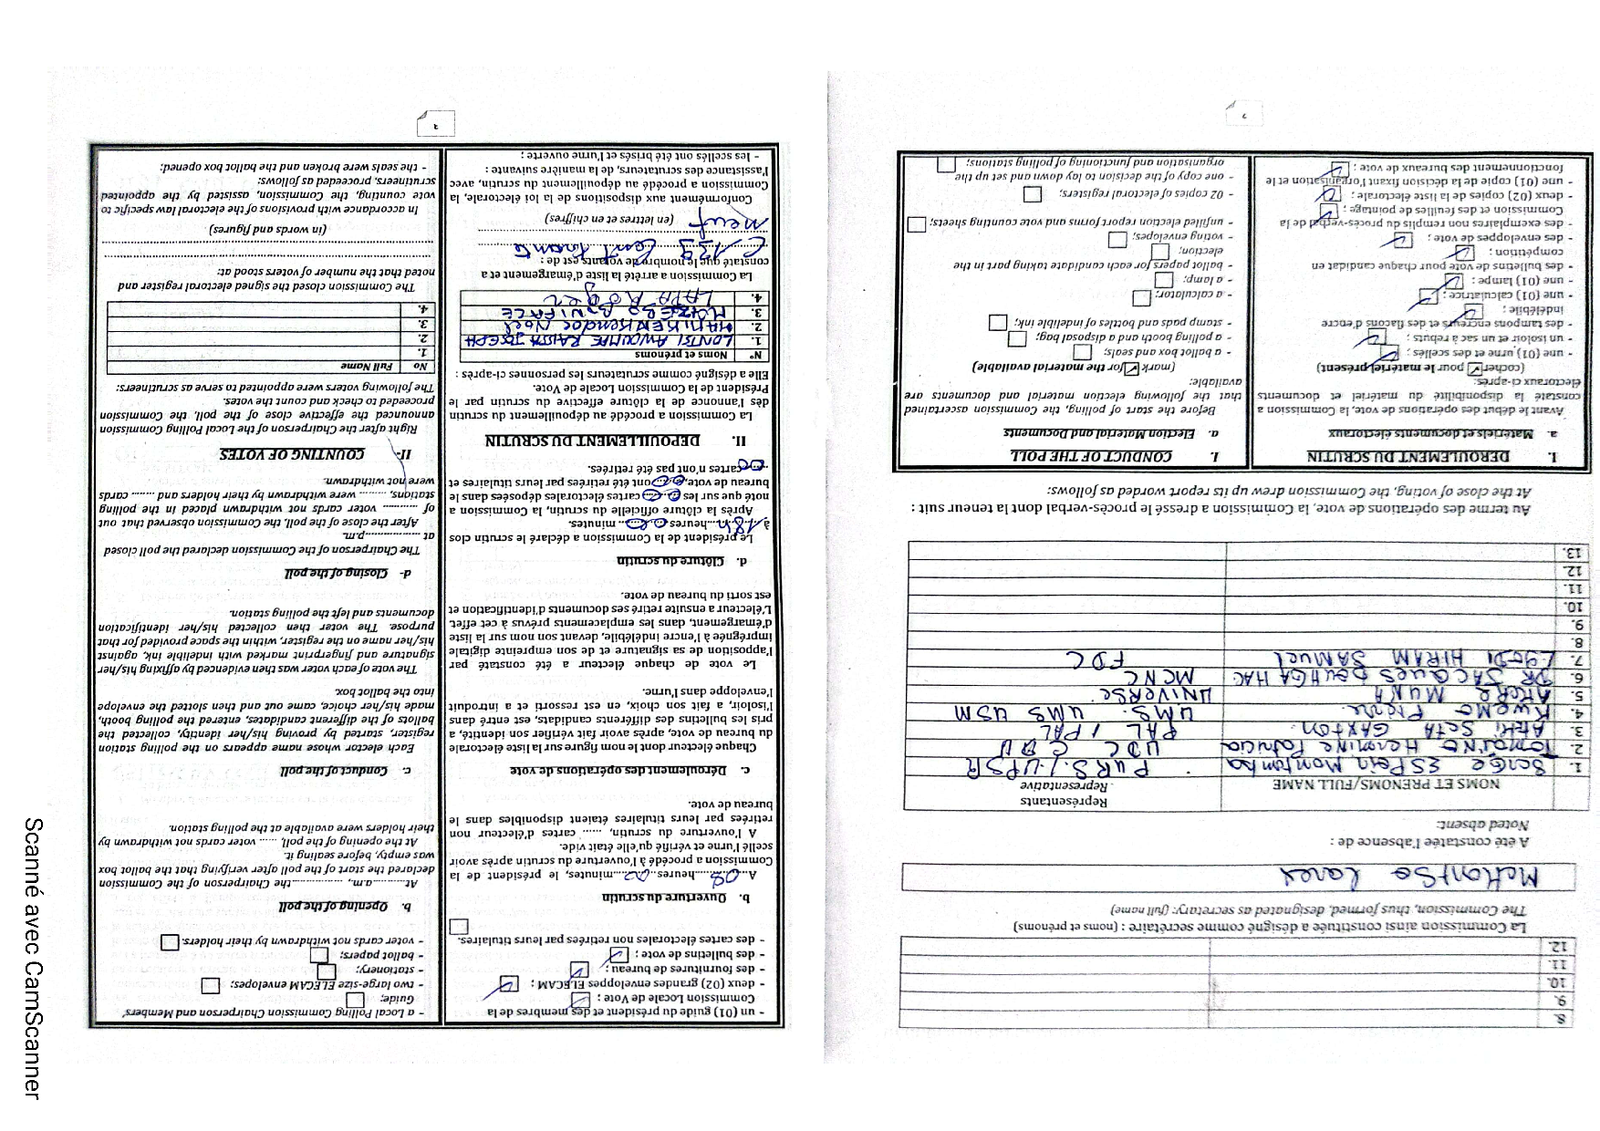 8.
9.
10.
11.
12.
La Commission ainsi constituée a désigné comme secrétaire : (noms et prénoms)
The Commission, thus formed, designated as secretary: (full name)
A été constatée l'absence de :
Noted absent:
NOMS ET PRENOMS/FULL NAME
Représentants
Representative
1. SERGE ESPOIR Matomba PURS / UPSR
2. TOMAINO Hermine Patricia UDC CDU
3. ATEKI SETA CAXTON PAL / PAL
4. KWEMO Pierre UMS. UMS USM
5. AKERE MUNA UNIVERS
6. DR JACQUES BOUHGA HAG MCNC
7. IYODI HIRAM SAMUEL FDC
8.
9.
10.
11.
12.
13.
Au terme des opérations de vote, la Commission a dressé le procès-verbal dont la teneur suit :
At the close of voting, the Commission drew up its report worded as follows:
I. DEROULEMENT DU SCRUTIN
a. Matériels et documents électoraux
Avant le début des opérations de vote, la Commission a
constaté la disponibilité du matériel et documents
électoraux ci-après:
(cocher ✓ pour le matériel présent)
- une (01) urne et des scellés ;
- un isoloir et un sac à rebuts ;
- des tampons encreurs et des flacons d'encre
indélébile ;
- une (01) calculatrice ;
- une (01) lampe ;
- des bulletins de vote pour chaque candidat en
compétition ;
- des enveloppes de vote ;
- des exemplaires non remplis du procès-verbal de la
Commission et des feuilles de pointage ;
- deux (02) copies de la liste électorale ;
- une (01) copie de la décision fixant l'organisation et le
fonctionnement des bureaux de vote ;
I. CONDUCT OF THE POLL
a. Election Material and Documents
Before the start of polling, the Commission ascertained
that the following election material and documents are
available:
(mark ✓ for the material available)
- a ballot box and seals;
- a polling booth and a disposal bag;
- stamp pads and bottles of indelible ink;
- a calculator;
- a lamp;
- ballot papers for each candidate taking part in the
election;
- voting envelopes;
- unfilled election report forms and vote counting sheets;
- 02 copies of electoral registers;
- one copy of the decision to lay down and set up the
organisation and functioning of polling stations;
2
- un (01) guide du président et des membres de la
Commission Locale de Vote ;
- deux (02) grandes enveloppes ELECAM ;
- des fournitures de bureau ;
- des bulletins de vote ;
- des cartes électorales non retirées par leurs titulaires.
b. Ouverture du scrutin
A...08...heures...00...minutes, le président de la
Commission a procédé à l'ouverture du scrutin après avoir
scellé l'urne et vérifié qu'elle était vide.
A l'ouverture du scrutin, ...... cartes d'électeur non
retirées par leurs titulaires étaient disponibles dans le
bureau de vote.
c. Déroulement des opérations de vote
Chaque électeur dont le nom figure sur la liste électorale
du bureau de vote, après avoir fait vérifier son identité, a
pris les bulletins des différents candidats, est entré dans
l'isoloir, a fait son choix, en est ressorti et a introduit
l'enveloppe dans l'urne.
Le vote de chaque électeur a été constaté par
l'apposition de sa signature et de son empreinte digitale
imprégnée à l'encre indélébile, devant son nom sur la liste
d'émargement, dans les emplacements prévus à cet effet.
L'électeur a ensuite retiré ses documents d'identification et
est sorti du bureau de vote.
d. Clôture du scrutin
Le président de la Commission a déclaré le scrutin clos
à...18h...heures...00...minutes.
Après la clôture officielle du scrutin, la Commission a
noté que sur les 00 cartes électorales déposées dans le
bureau de vote, 00 ont été retirées par leurs titulaires et
00 cartes n'ont pas été retirées.
II. DEPOUILLEMENT DU SCRUTIN
La Commission a procédé au dépouillement du scrutin
dès l'annonce de la clôture effective du scrutin par le
Président de la Commission Locale de Vote.
Elle a désigné comme scrutateurs les personnes ci-après :
N° Noms et prénoms
1. LONTSI AWOUME RAISSA JOSEPH
2.
3. BONIFACE
4. LAPA Roger
La Commission a arrêté la liste d'émargement et a
constaté que le nombre de votants est de :
139 Cent trente
neuf
(en lettres et en chiffres)
Conformément aux dispositions de la loi électorale, la
Commission a procédé au dépouillement du scrutin, avec
l'assistance des scrutateurs, de la manière suivante :
- les scellés ont été brisés et l'urne ouverte ;
- a Local Polling Commission Chairperson and Members'
Guide;
- two large-size ELECAM envelopes;
- stationery;
- ballot papers;
- voter cards not withdrawn by their holders.
b. Opening of the poll
At............a.m., ............the Chairperson of the Commission
declared the start of the poll after verifying that the ballot box
was empty, before sealing it.
At the opening of the poll, ...... voter cards not withdrawn by
their holders were available at the polling station.
c. Conduct of the poll
Each elector whose name appears on the polling station
register, started by proving his/her identity, collected the
ballots of the different candidates, entered the polling booth,
made his/her choice, came out and then slotted the envelope
into the ballot box.
The vote of each voter was then evidenced by affixing his/her
signature and fingerprint marked with indelible ink, against
his/her name on the register, within the space provided for that
purpose. The voter then collected his/her identification
documents and left the polling station.
d- Closing of the poll
The Chairperson of the Commission declared the poll closed
at ....................p.m.
After the close of the poll, the Commission observed that out
of .......... voter cards not withdrawn placed in the polling
stations, ........ were withdrawn by their holders and ....... cards
were not withdrawn.
II- COUNTING OF VOTES
Right after the Chairperson of the Local Polling Commission
announced the effective close of the poll, the Commission
proceeded to check and count the votes.
The following voters were appointed to serve as scrutineers:
No Full Name
1.
2.
3.
4.
The Commission closed the signed electoral register and
noted that the number of voters stood at:
(in words and figures)
In accordance with provisions of the electoral law specific to
vote counting, the Commission, assisted by the appointed
scrutineers, proceeded as follows:
- the seals were broken and the ballot box opened:
3
Scanné avec CamScanner